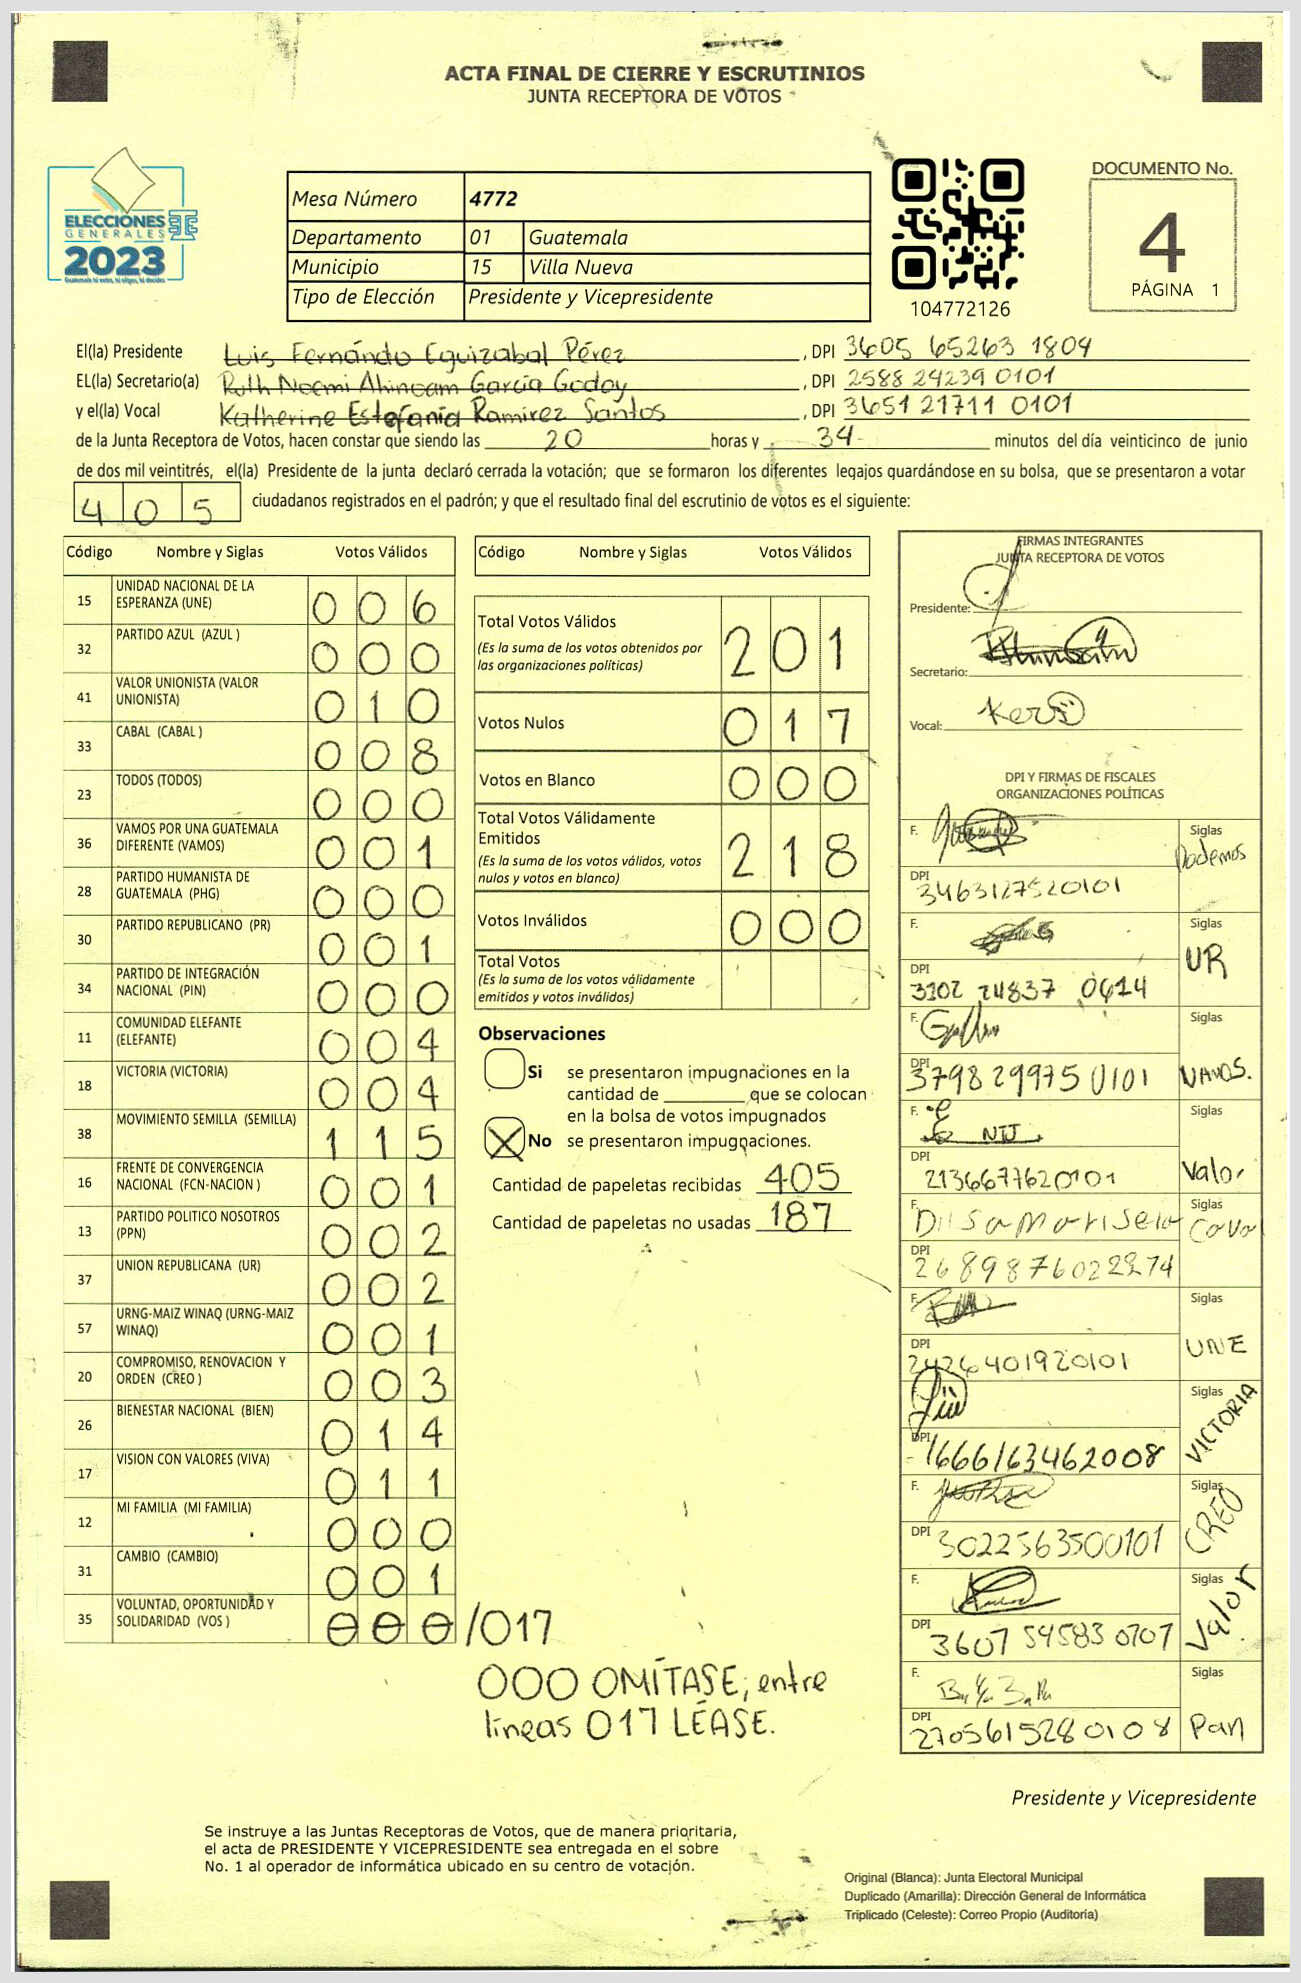 ACTA FINAL DE CIERRE Y ESCRUTINIOS
JUNTA RECEPTORA DE VOTOS
ELECCIONES
GENERALES
2023
Mesa Número 4772
Departamento 01 Guatemala
Municipio 15 Villa Nueva
Tipo de Elección Presidente y Vicepresidente
104772126
DOCUMENTO No.
4
PÁGINA 1
El(la) Presidente Luis Fernándo Eguizabal Pérez, DPI 3605 65263 1804
EL(la) Secretario(a) Ruth Noemi Ahinoam García Godoy, DPI 2588 24239 0101
y el(la) Vocal Katherine Estefanía Ramirez Santos, DPI 3651 21711 0101
de la Junta Receptora de Votos, hacen constar que siendo las 20 horas y 34 minutos del día veinticinco de junio
de dos mil veintitrés, el(la) Presidente de la junta declaró cerrada la votación; que se formaron los diferentes legajos guardándose en su bolsa, que se presentaron a votar
405 ciudadanos registrados en el padrón; y que el resultado final del escrutinio de votos es el siguiente:
Código Nombre y Siglas Votos Válidos
15 UNIDAD NACIONAL DE LA ESPERANZA (UNE) 006
32 PARTIDO AZUL (AZUL ) 000
41 VALOR UNIONISTA (VALOR UNIONISTA) 010
33 CABAL (CABAL ) 008
23 TODOS (TODOS) 000
36 VAMOS POR UNA GUATEMALA DIFERENTE (VAMOS) 001
28 PARTIDO HUMANISTA DE GUATEMALA (PHG) 000
30 PARTIDO REPUBLICANO (PR) 001
34 PARTIDO DE INTEGRACIÓN NACIONAL (PIN) 000
11 COMUNIDAD ELEFANTE (ELEFANTE) 004
18 VICTORIA (VICTORIA) 004
38 MOVIMIENTO SEMILLA (SEMILLA) 115
16 FRENTE DE CONVERGENCIA NACIONAL (FCN-NACION ) 001
13 PARTIDO POLITICO NOSOTROS (PPN) 002
37 UNION REPUBLICANA (UR) 002
57 URNG-MAIZ WINAQ (URNG-MAIZ WINAQ) 001
20 COMPROMISO, RENOVACION Y ORDEN (CREO ) 003
26 BIENESTAR NACIONAL (BIEN) 014
17 VISION CON VALORES (VIVA) 011
12 MI FAMILIA (MI FAMILIA) 000
31 CAMBIO (CAMBIO) 001
35 VOLUNTAD, OPORTUNIDAD Y SOLIDARIDAD (VOS ) 000 /017
000 OMÍTASE; entre
líneas 017 LÉASE.
Código Nombre y Siglas Votos Válidos
Total Votos Válidos 201
(Es la suma de los votos obtenidos por
las organizaciones políticas)
Votos Nulos 017
Votos en Blanco 000
Total Votos Válidamente
Emitidos 218
(Es la suma de los votos válidos, votos
nulos y votos en blanco)
Votos Inválidos 000
Total Votos
(Es la suma de los votos válidamente
emitidos y votos inválidos)
Observaciones
Si se presentaron impugnaciones en la
cantidad de ________ que se colocan
en la bolsa de votos impugnados
X No se presentaron impugnaciones.
Cantidad de papeletas recibidas 405
Cantidad de papeletas no usadas 187
FIRMAS INTEGRANTES
JUNTA RECEPTORA DE VOTOS
Presidente:
Secretario:
Vocal:
DPI Y FIRMAS DE FISCALES
ORGANIZACIONES POLÍTICAS
F. Siglas Podemos
DPI 3463127520101
F. Siglas UR
DPI 3102 24837 0614
F. Siglas VAMOS.
DPI 3798 29975 0101
F. Siglas Valor
DPI 2136677620101
F. Siglas
DPI 2689876022274
F. Siglas UNE
DPI 2426401920101
F. Siglas VICTORIA
DPI 1666163462008
F. Siglas CREO
DPI 3022563500101
F. Siglas Valor
DPI 3607 54583 0707
F. Siglas Pan
DPI 2705615280108
Presidente y Vicepresidente
Se instruye a las Juntas Receptoras de Votos, que de manera prioritaria,
el acta de PRESIDENTE Y VICEPRESIDENTE sea entregada en el sobre
No. 1 al operador de informática ubicado en su centro de votación.
Original (Blanca): Junta Electoral Municipal
Duplicado (Amarilla): Dirección General de Informática
Triplicado (Celeste): Correo Propio (Auditoría)